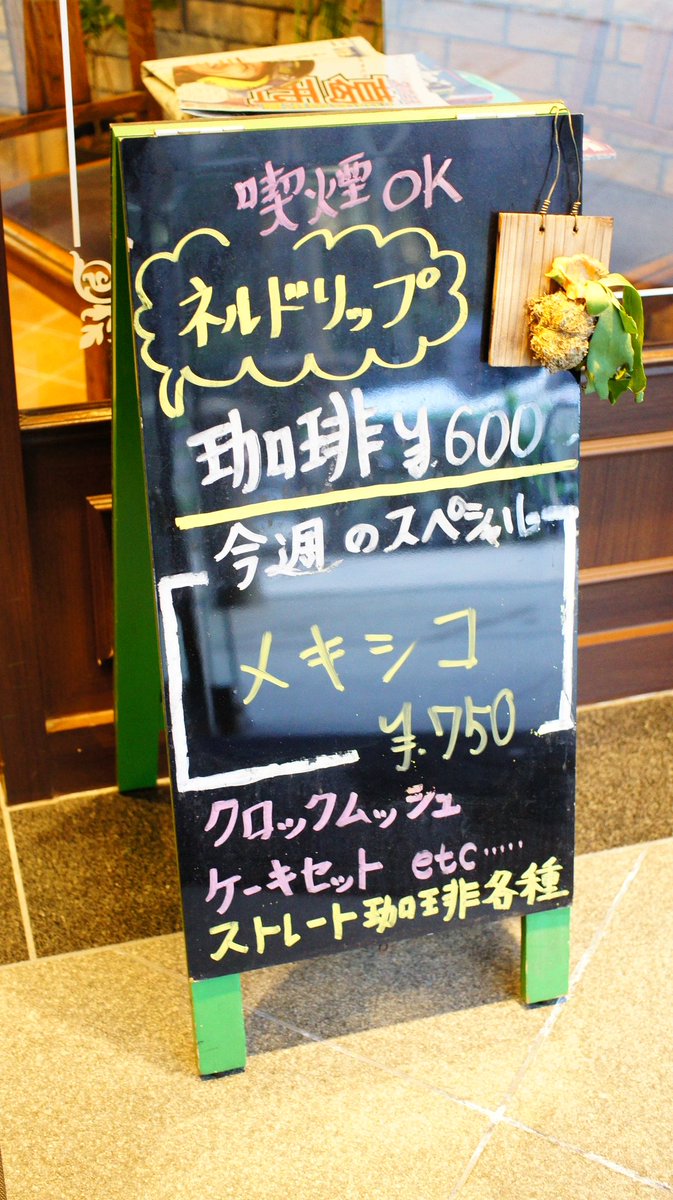 喫煙OK
ネルドリップ
珈琲¥600
今週のスペシャル
メキシコ
¥.750
クロックムッシュ
ケーキセット etc……
ストレート珈琲各種